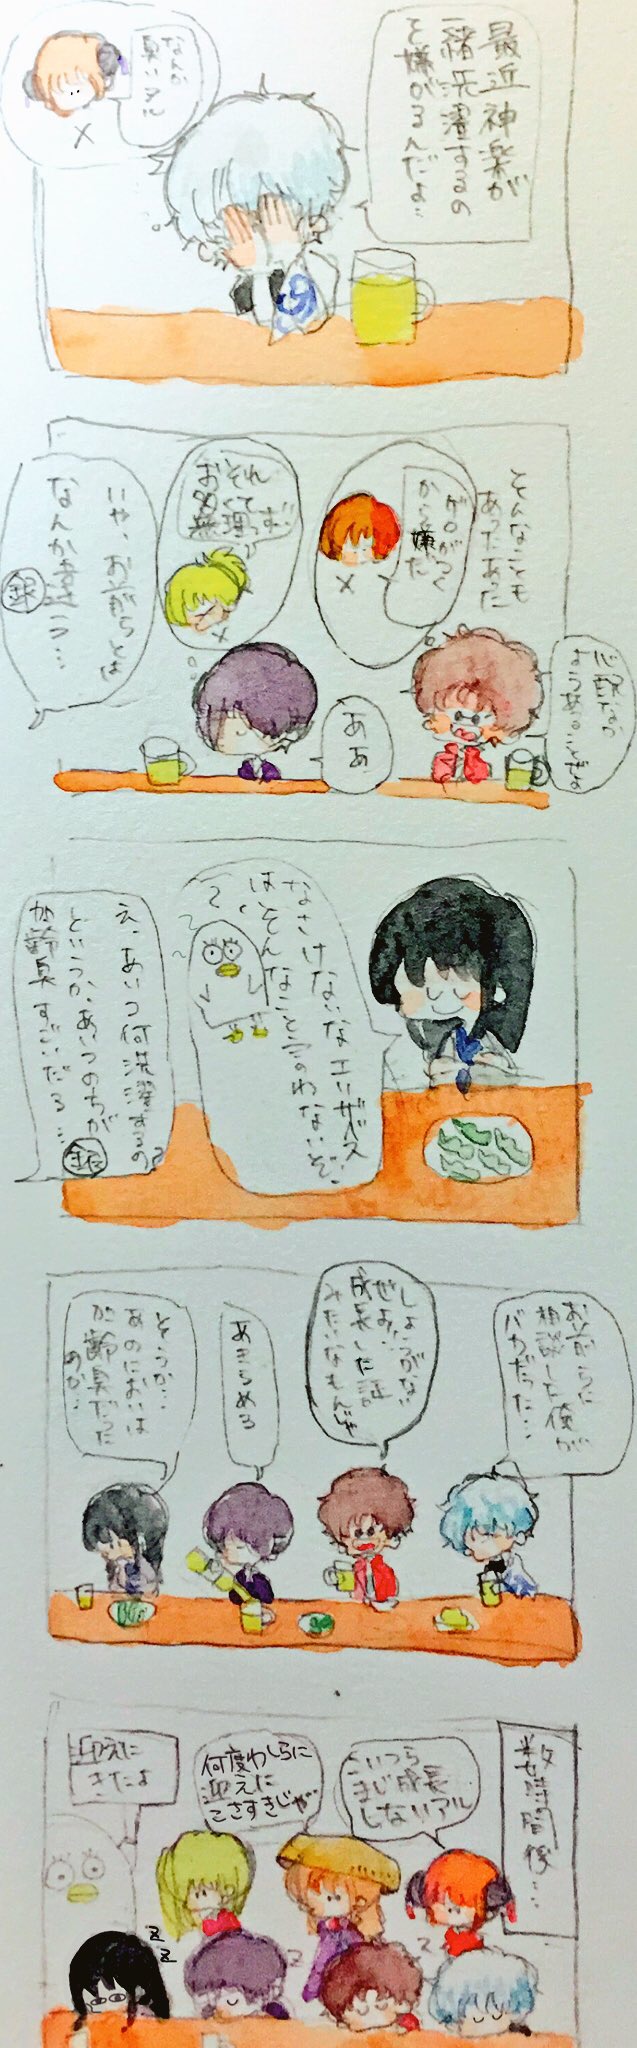 最近神楽が
一緒洗濯するの
を嫌がるんだよ…
なんか
臭いアル
そんなことも
あったあた
ゲロがつく
から嫌だ
心配なら
ようあることぜよ
おそれ
多くて
無理っす
ああ
いや、お前らとは
なんか違う…
銀
なさけないな、エリザベス
はそんなこと言わないぞ
え、あいつ何洗濯するの?
というか、あいつのちが
加齢臭すごいだろ…
銀
お前らに
相談した俺が
バカだった…
しょうがない
ぜよ…
成長した証
みたいなもんじゃ
あきらめろ
そうか…
あのにおいは
加齢臭だった
のか…
数時間後…
こいつら
まじ成長
しないアル
何度わしらに
迎えに
こさすきじゃ
迎えに
きたよ
z
z
z
z